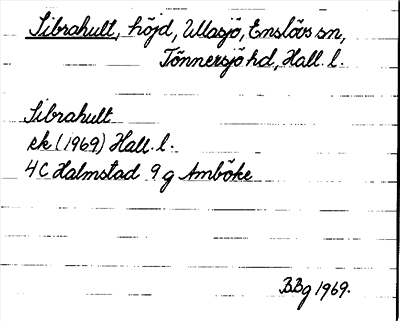 Sibrahult, höjd, Ullasjö, Enslövs sn,
Tönnersjö hd, Hall. l.
Sibrahult
ek (1969) Hall. l.
4C Halmstad 9g Amböke
BBg 1969.